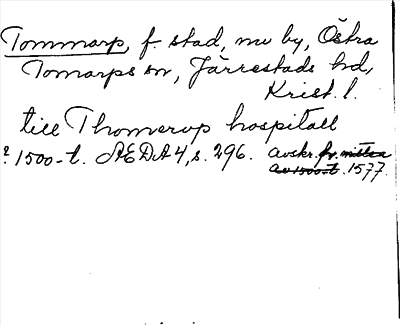 Tommarp, f. stad, nu by, Östra
Tomarps sn, Järrestads hd,
Krist. l.
till Thomerup hospitall
? 1500-t. ÆDA 4, s. 296. avskr. fr. mitten
av 1500-t. 1577.